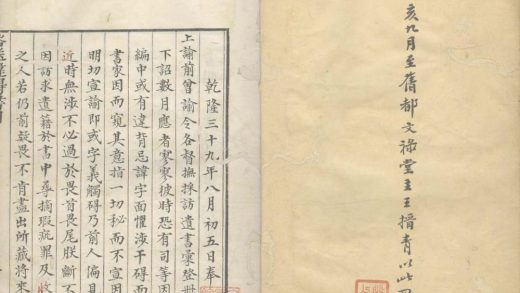 亥九月至舊都文祿堂主王搢青以此
乾隆三十九年八月初五日奉
上諭前曾諭令各督撫採訪遺書彙登冊
下詔數月應者寥寥彼時恐有司等因
編中或有違背忌諱字面懼涉干碍而
書家因而窺其意指一切秘而不宣因
明切宣諭即或字義觸碍乃前人偏見
近時無涉不必過於畏首畏尾朕斷不
因訪求遺籍於書中尋摘瑕疵罪及收
之人若仍前疑畏不肯盡出所藏將來